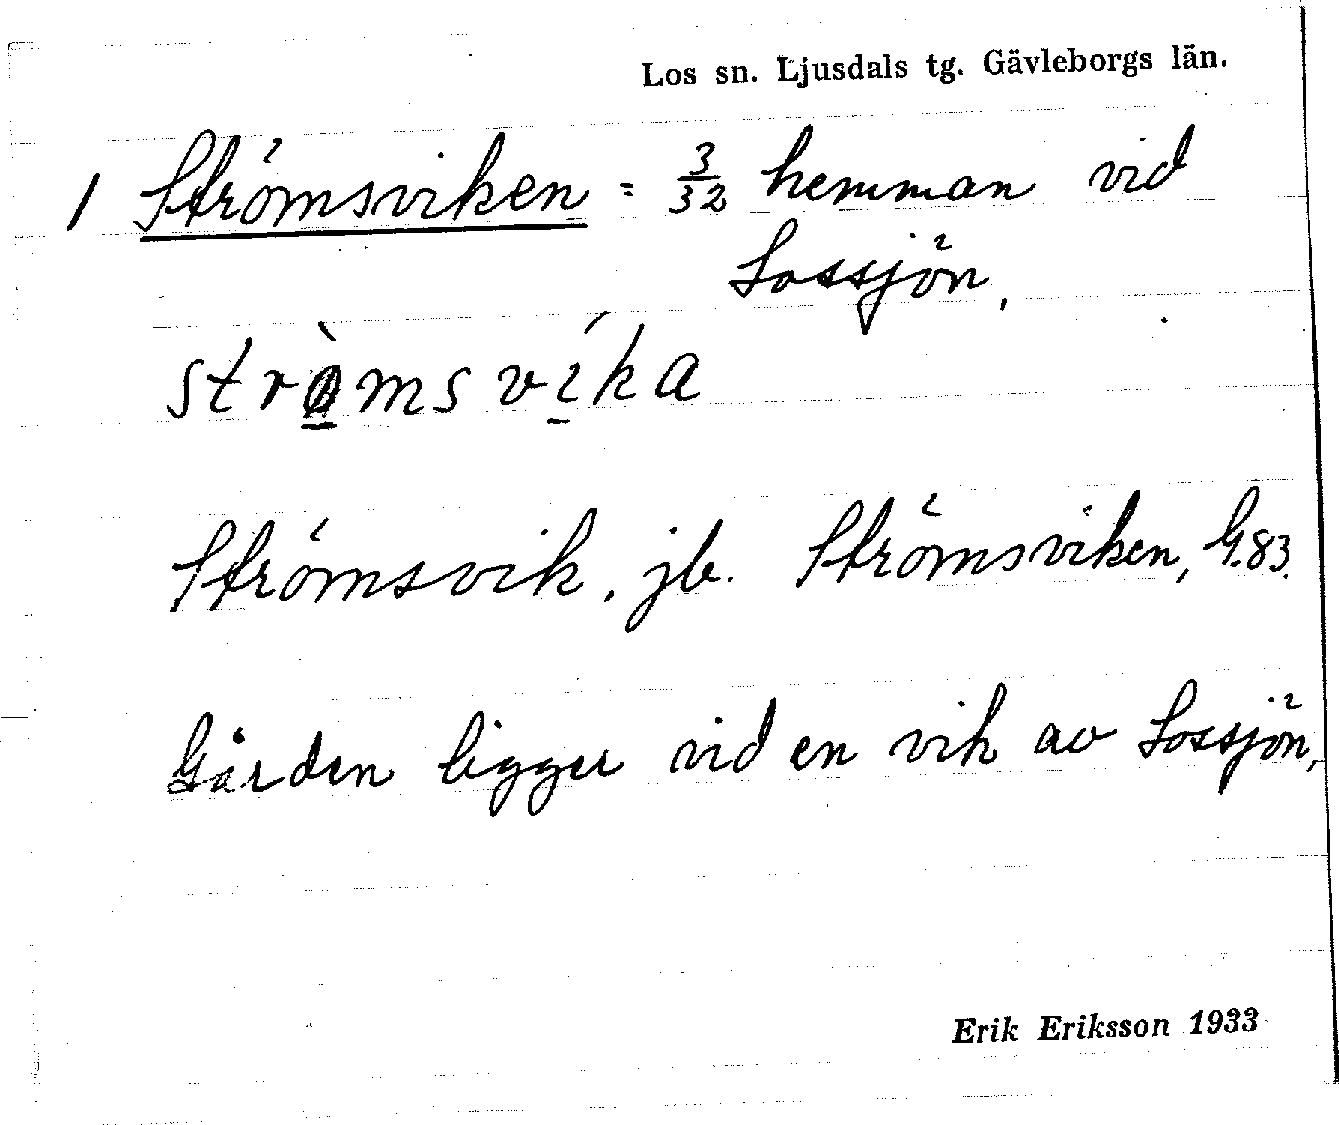 Los sn. Ljusdals tg. Gävleborgs län.
1 Strömsviken = 3/32 hemman vid
Lossjön.
stròmsvíka
Strömsvik, jb. Strömsviken, G.83.
Gården ligger vid en vik av Lossjön.
Erik Eriksson 1933